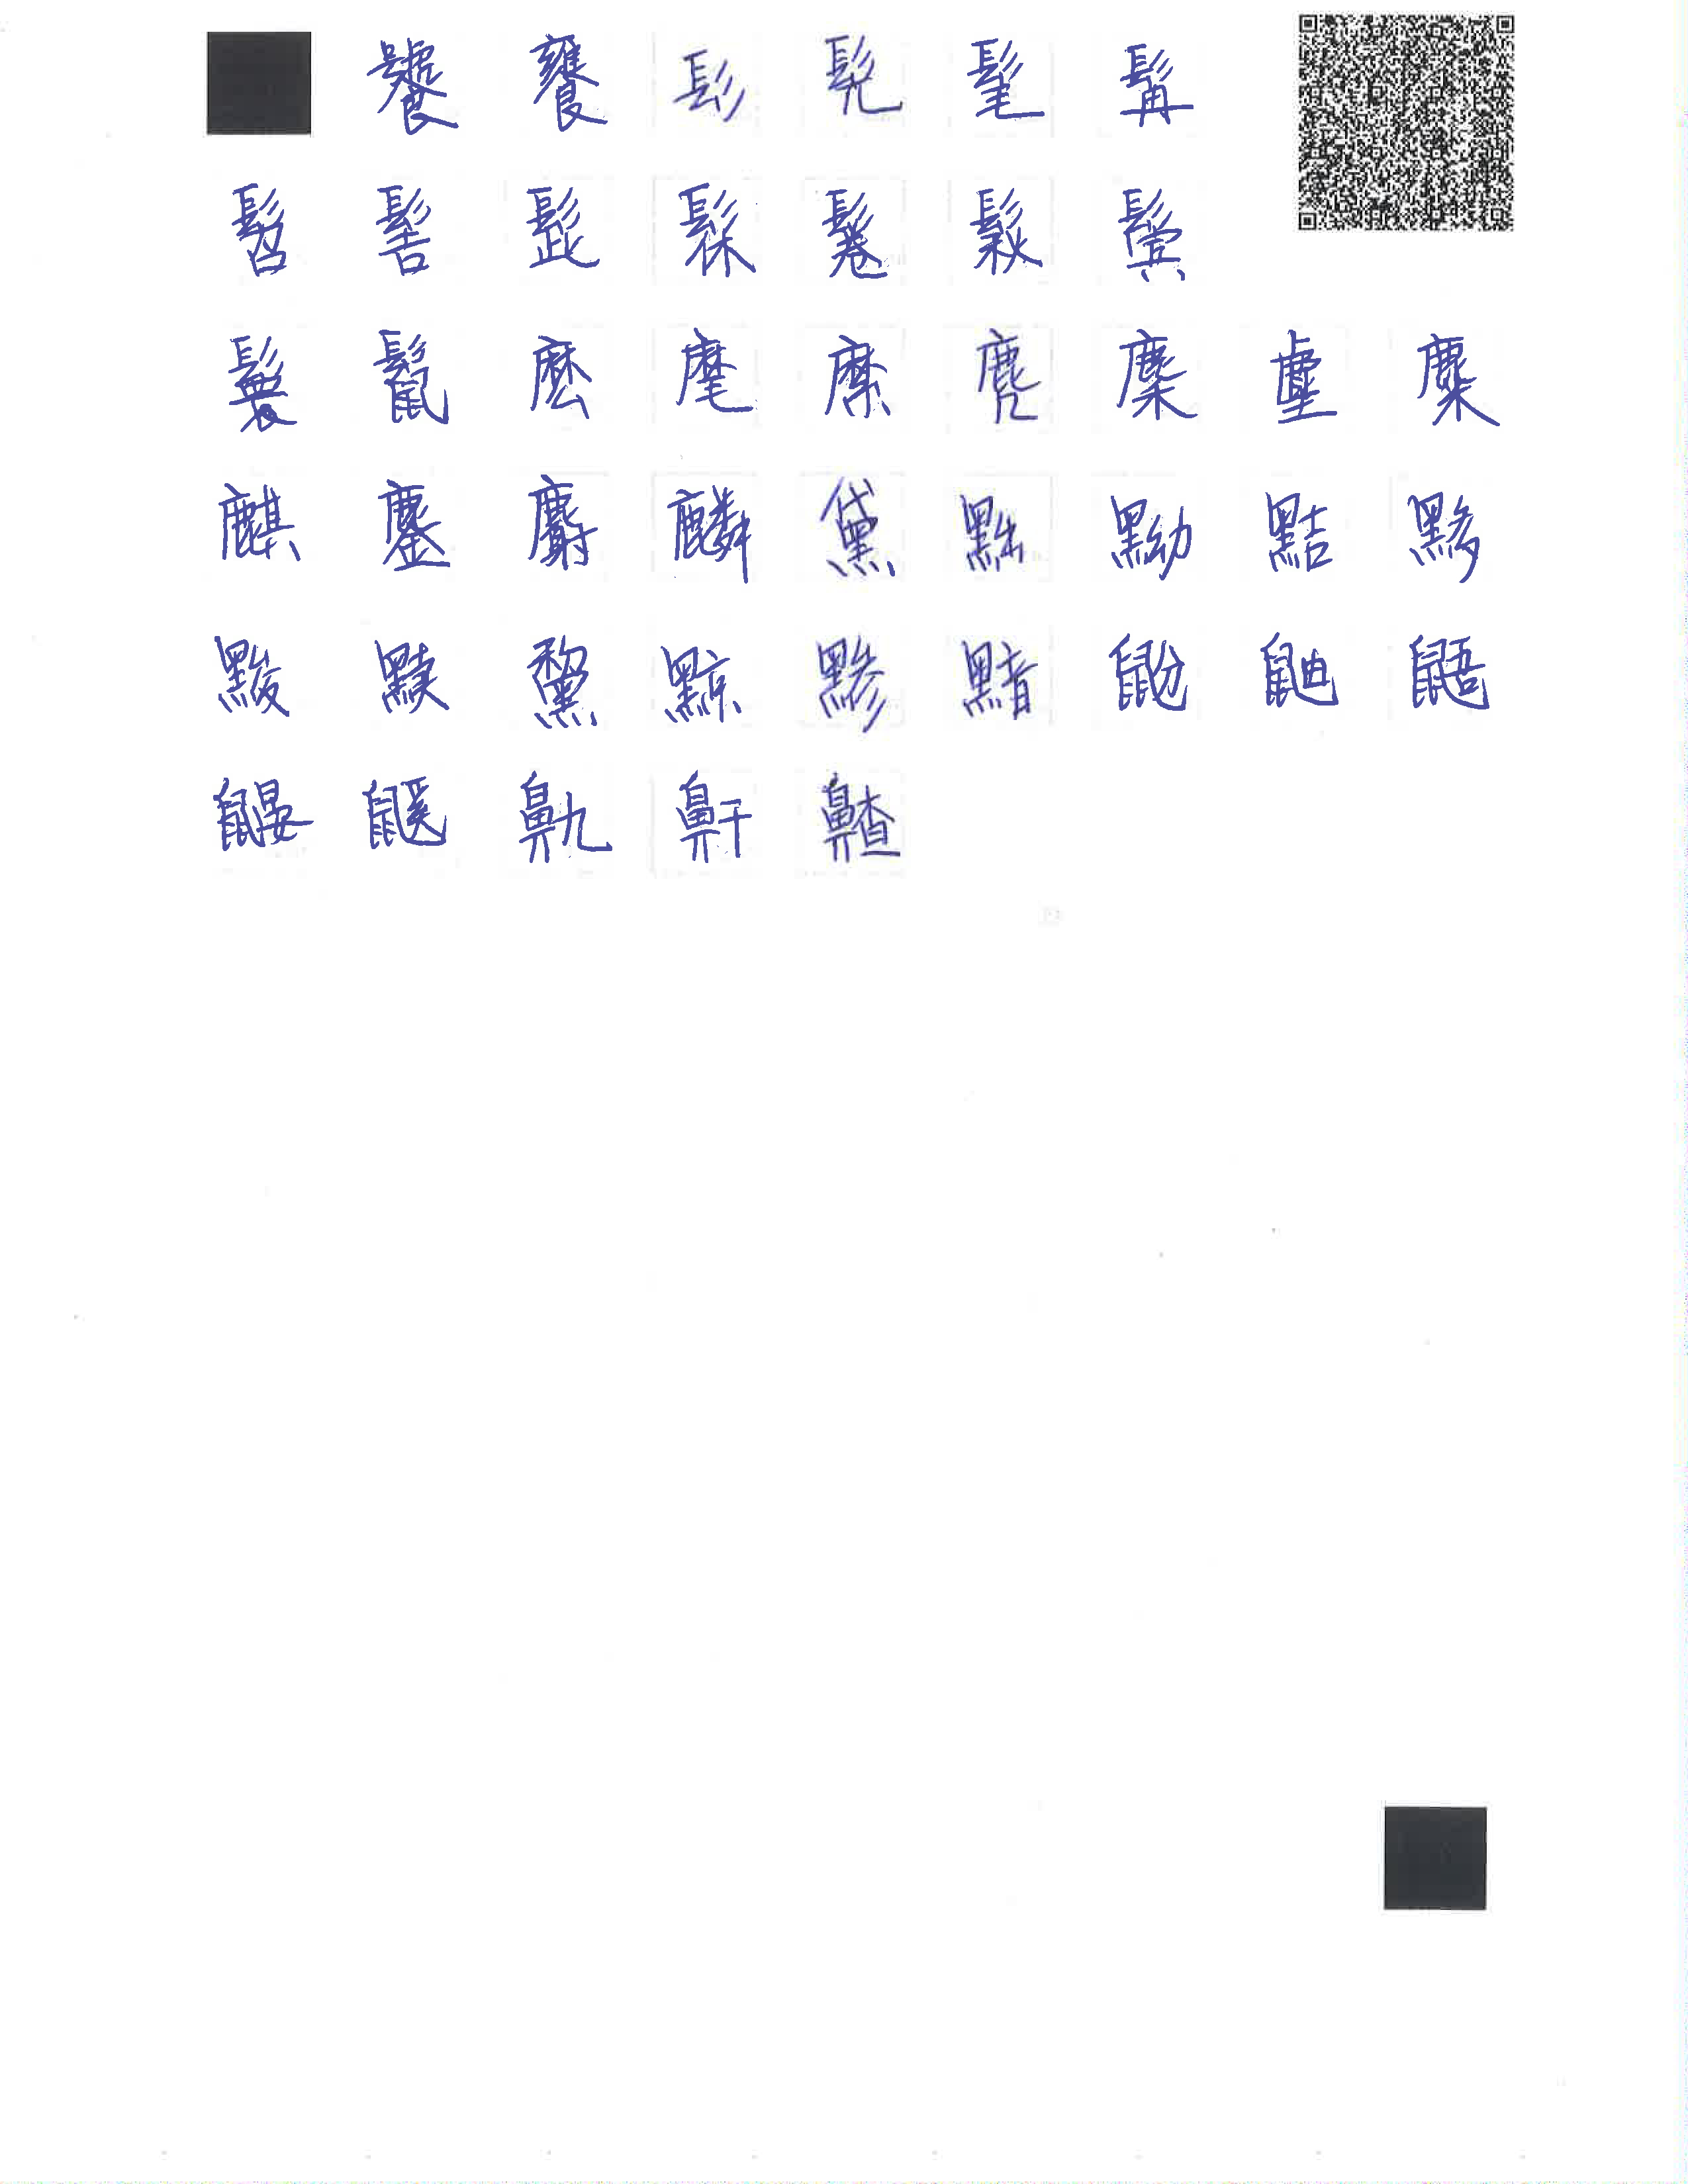 饕饔髟髡髦髯
髫髻髭髹鬈鬏鬓
鬟鬣麽麾縻麂麇麈麋
麒鏖麝麟黛黜黝黠黟
黢黩黧黥黪黯鼢鼬鼯
鼹鼷鼽鼾齄